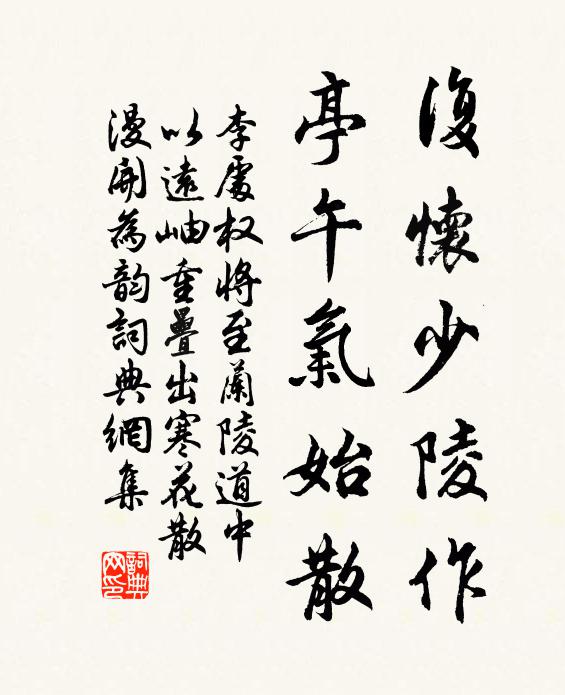 復懷少陵作
亭午氣始散
李處权將至蘭陵道中
以遠岫重疊出寒花散
漫開為韵詞典網集
詞典網印